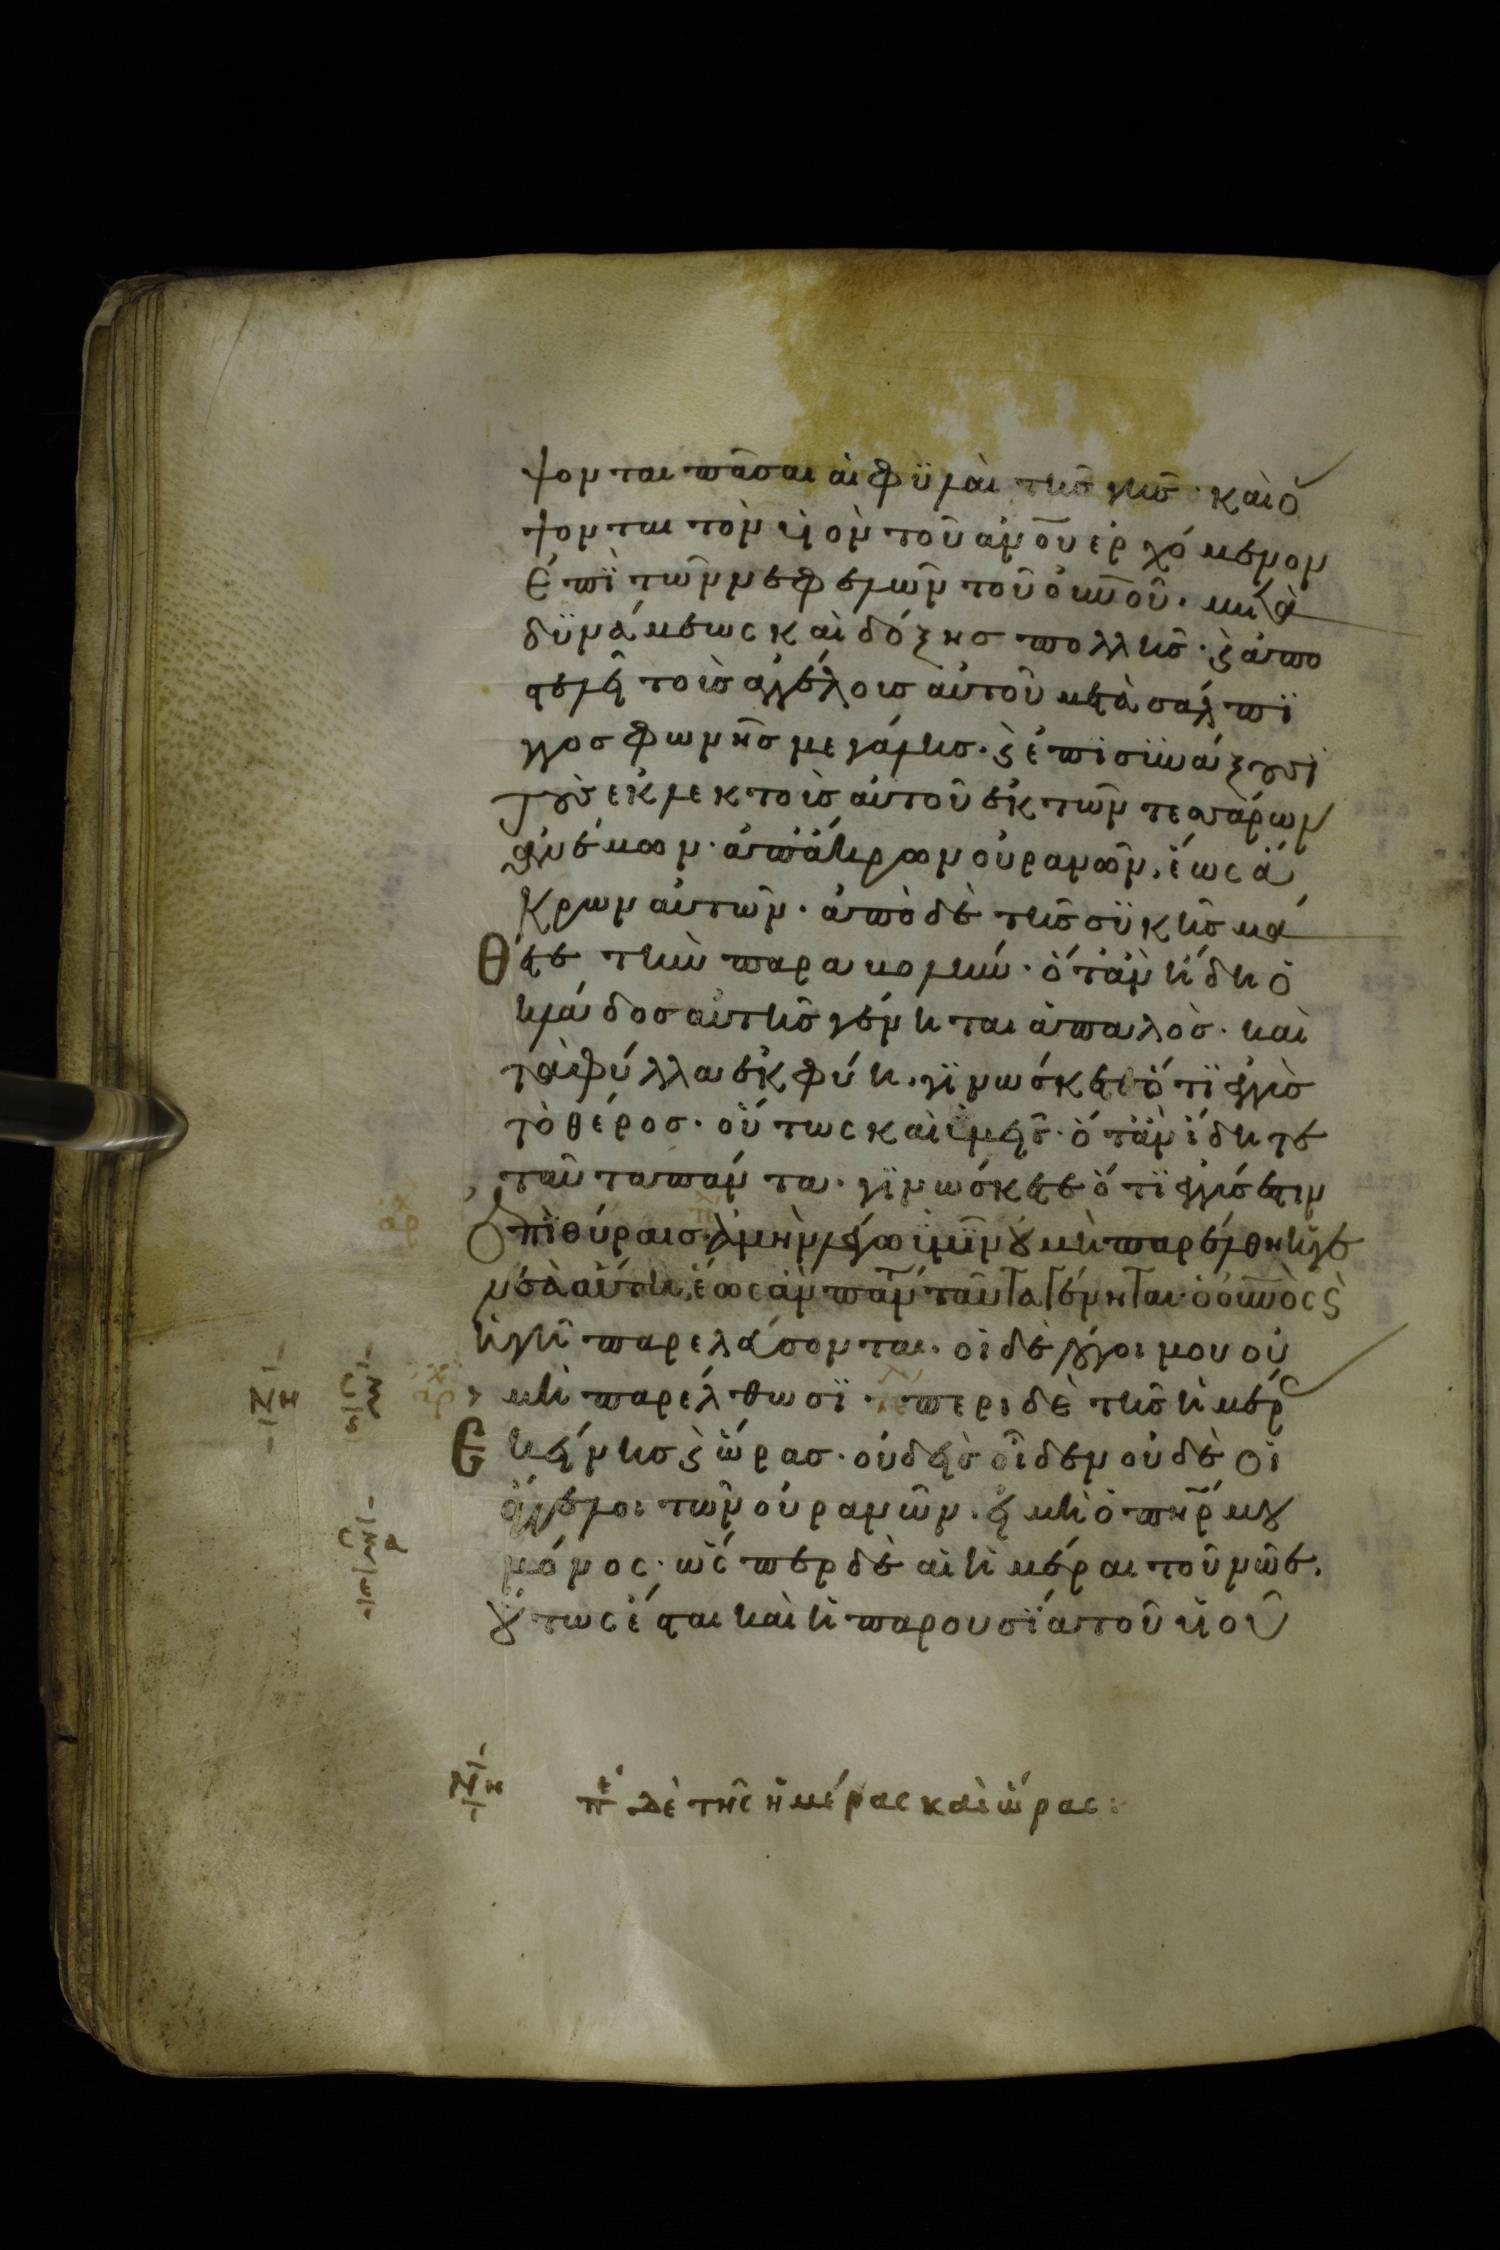 ψονται πᾶσαι αἱ φϋλαὶ τῆς γῆς· καὶ ὄ
ψονται τὸν υἱὸν τοῦ ἀν̅ου ἐρχόμενον
ἐπῒ τῶν νεφελῶν τοῦ οὐν̅οῦ· μετὰ
δϋνάμεως καὶ δόξης πολλῆς· ϗ ἀπο
στελεῖ τοὶς ἀγγέλοις αὐτοῦ μετὰ σάλπϊ
γγος φωνῆς μεγάλης· ϗ ἐπϊσϋνάξουσϊ
τοὺς ἐκλεκτοὶς αὐτοῦ ἐκ τῶν τεσσάρων
ἀνέμων· ἀπ' ἄκρων οὐρανῶν, ἕως ἄ
κρων αὐτῶν· ἀπὸ δὲ τῆς σϋκῆς μά
θετε τὴν παραβολήν· ὅτὰν ἤδη ὁ
κλάδος αὐτῆς γένηται ἁπαλὸς· καὶ
τὰ φύλλα ἐκφύη· γϊνώσκετε ὅτϊ ἐγγὺς
τὸ θέρος· οὕτως καὶ ὑμεῖς· ὅτὰν ἴδητε
ταῦτα πάντα· γϊνώσκετε ὅτϊ ἐγγύς ἐστιν
ἐπῒ θύραις· ἀμὴν λέγω ὑμῖν οὐ μὴ παρέλθη ἡ γε
νεὰ αὕτη, ἕως ἂν πάντα ταῦτα γένηται· ὁ οὐν̅ὸς ϗ
ἡ γῆ παρελεύσονται· οἱ δὲ λόγοι μου οὐ
μὴ παρέλθωσϊ· περὶ δὲ τῆς ἡμέρ
ἐκείνης ϗ ὥρας· οὐδεὶς οἶδεν οὐδὲ οἱ
ἄγγελοι τῶν οὐρανῶν· εἰ μὴ ὁ πη̅ρ μου
μόνος· ὥσπερ δὲ αἱ ἡμέραι τοῦ νῶε,
οὕτως ἔσται καὶ ἡ παρουσΐα τοῦ υἱοῦ
ΝΗ περὶ δὲ τῆς ἡμέρας καὶ ὥρας: